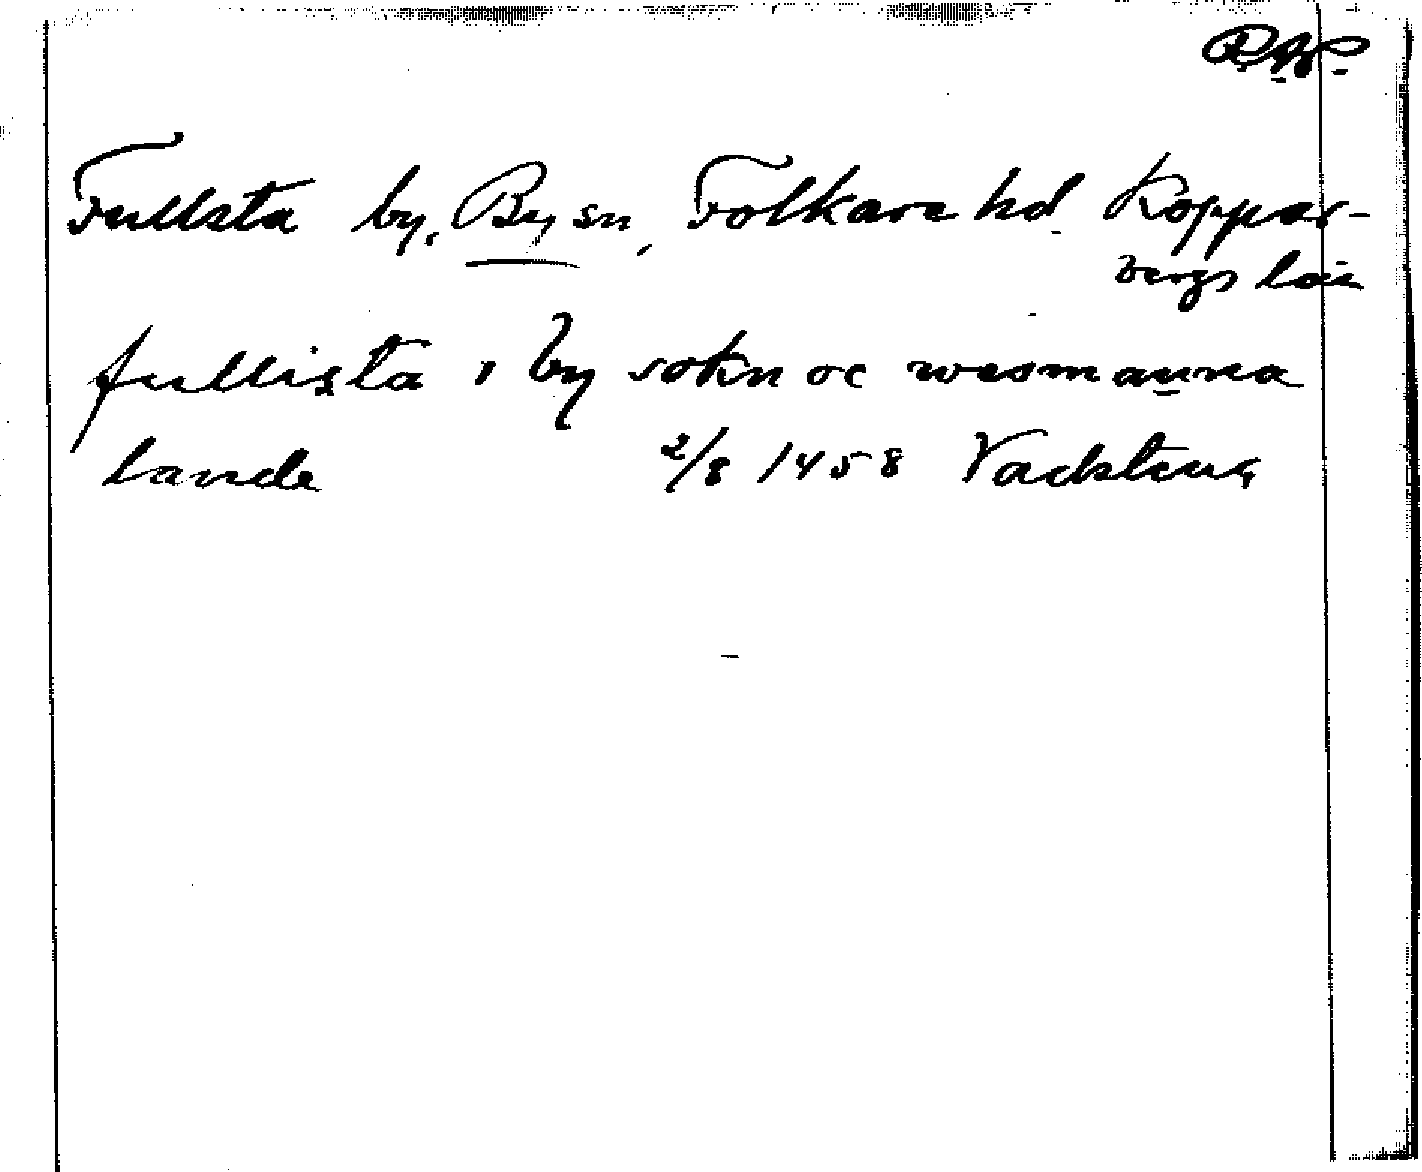 Fullsta by, By sn, Folkare hd Koppar-
bergs län
fullista i by sokn oc wesmanna
lande 2/8 1458 Vadstena